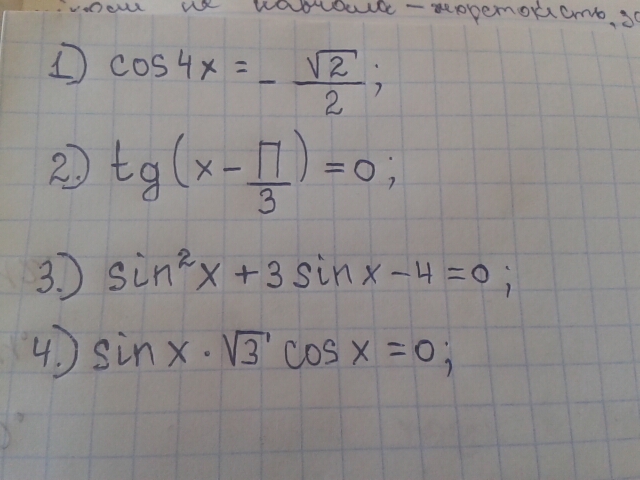 не навчала - жорстокість, за
1) cos4x = - √2/2;
2.) tg(x - π/3) = 0;
3.) sin²x + 3 sinx - 4 = 0;
4.) sin x · √3 cos x = 0;